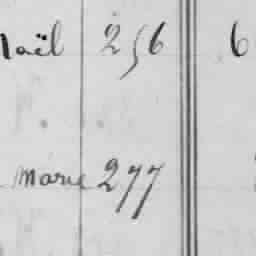 Noël 256 6
Marie 277